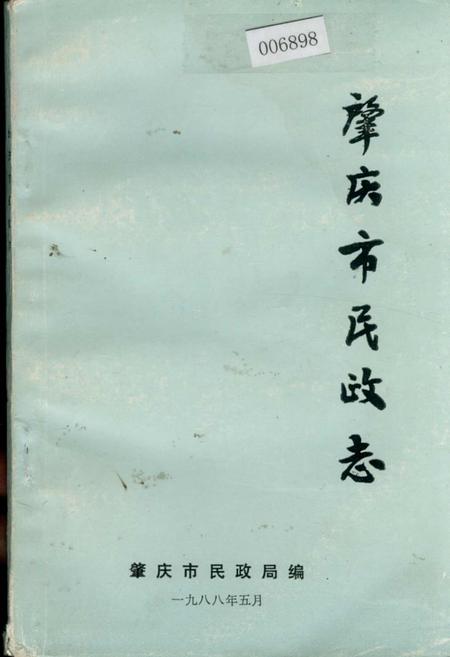 006898
肇庆市民政志
肇庆市民政局编
一九八八年五月